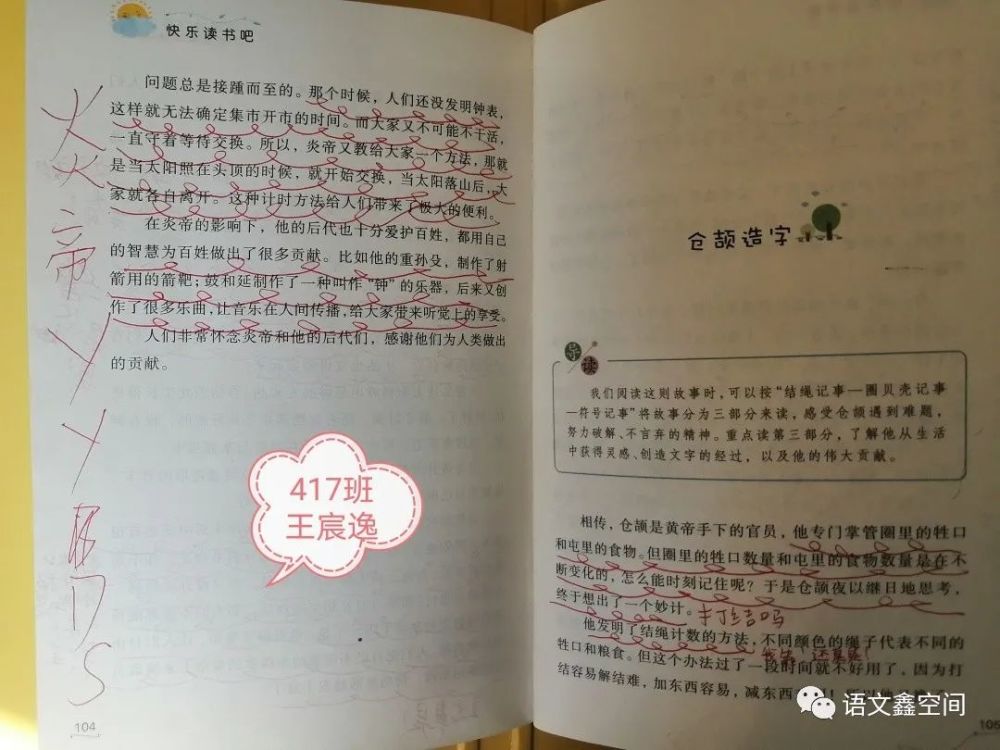 快乐读书吧
问题总是接踵而至的。那个时候，人们还没发明钟表，
这样就无法确定集市开市的时间。而大家又不可能不干活，
一直守着等待交换。所以，炎帝又教给大家一个方法，那就
是当太阳照在头顶的时候，就开始交换，当太阳落山后，大
家就各自离开。这种计时方法给人们带来了极大的便利。
在炎帝的影响下，他的后代也十分爱护百姓，都用自己
的智慧为百姓做出了很多贡献。比如他的重孙殳，制作了射
箭用的箭靶；鼓和延制作了一种叫作“钟”的乐器，后来又创
作了很多乐曲，让音乐在人间传播，给大家带来听觉上的享受。
人们非常怀念炎帝和他的后代们，感谢他们为人类做出
的贡献。
炎帝YY
S
417班
王宸逸
104
仓颉造字
导读
我们阅读这则故事时，可以按“结绳记事—圈贝壳记事
—符号记事”将故事分为三部分来读，感受仓颉遇到难题，
努力破解、不言弃的精神。重点读第三部分，了解他从生活
中获得灵感、创造文字的经过，以及他的伟大贡献。
相传，仓颉是黄帝手下的官员，他专门掌管圈里的牲口
和屯里的食物。但圈里的牲口数量和屯里的食物数量是在不
断变化的，怎么能时刻记住呢？于是仓颉夜以继日地思考，
终于想出了一个妙计。
打结吗
他发明了结绳计数的方法，不同颜色的绳子代表不同的
牲口和粮食。但这个办法过了一段时间就不好用了，因为打
结容易解结难，加东西容易，减东西
语文鑫空间
105